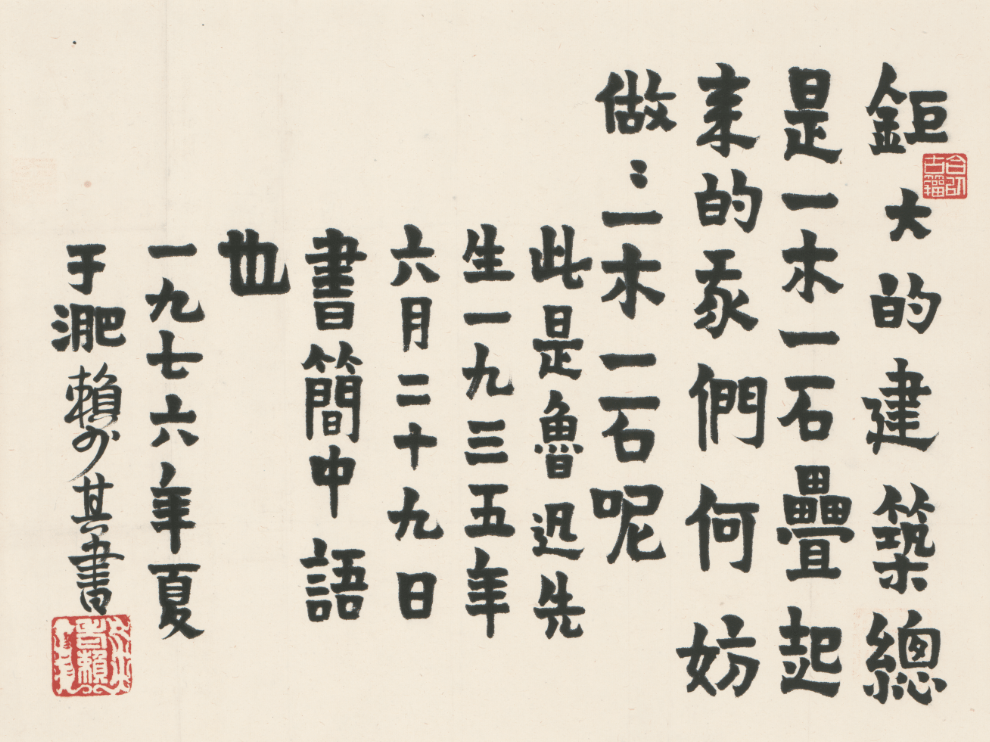 鉅大的建築總
是一木一石疊起
来的我們何妨
做：一木一石呢
此是魯迅先
生一九三五年
六月二十九日
書簡中語
也
一九七六年夏
于淝賴少其書